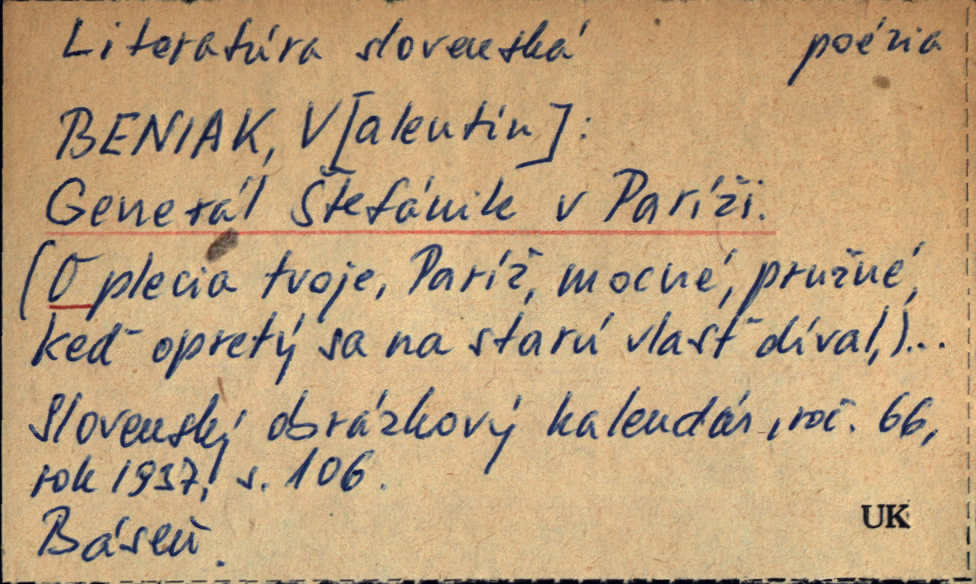 Literatúra slovenská poézia
BENIAK, V[alentín]:
Generál Štefánik v Paríži.
(O plecia tvoje, Paríž, mocné, pružné,
keď opretý sa na starú vlasť díval,)...
Slovenský obrázkový kalendár, roč. 66,
rok 1937, s. 106.
Báseň.
UK